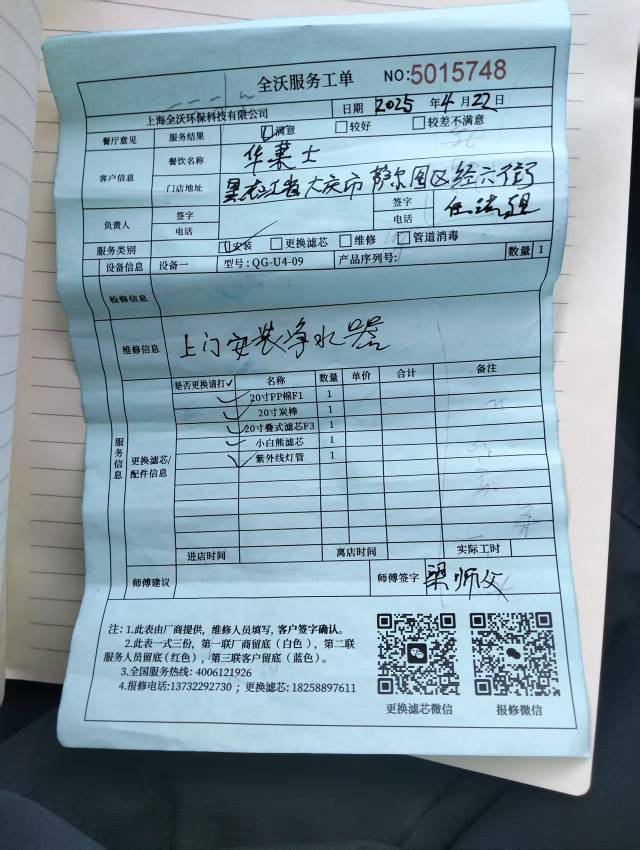 全沃服务工单 NO:5015748
上海全沃环保科技有限公司 日期 2025 年 4 月 22 日
餐厅意见 服务结果 ☑满意 □较好 □较差不满意
客户信息 餐饮名称 华莱士
门店地址 黑龙江省大庆市萨尔图区经六街
负责人 签字 签字
电话 电话
服务类别 ☑安装 □更换滤芯 □维修 □管道消毒
设备信息 设备一 型号: QG-U4-09 产品序列号: 数量 1
检修信息
维修信息 上门安装净水器
服务信息 更换滤芯/配件信息
是否更换请打✓ 名称 数量 单价 合计 备注
✓ 20寸PP棉F1 1
✓ 20寸炭棒 1
✓ 20寸叠式滤芯F3 1
✓ 小白熊滤芯 1
✓ 紫外线灯管 1
进店时间 离店时间 实际工时
师傅建议 师傅签字 梁师父
注: 1.此表由厂商提供, 维修人员填写, 客户签字确认。
2.此表一式三份, 第一联厂商留底 (白色), 第二联
服务人员留底(红色), 第三联客户留底 (蓝色)。
3.全国服务热线: 4006121926
4.报修电话:13732292730 ; 更换滤芯: 18258897611
更换滤芯微信 报修微信